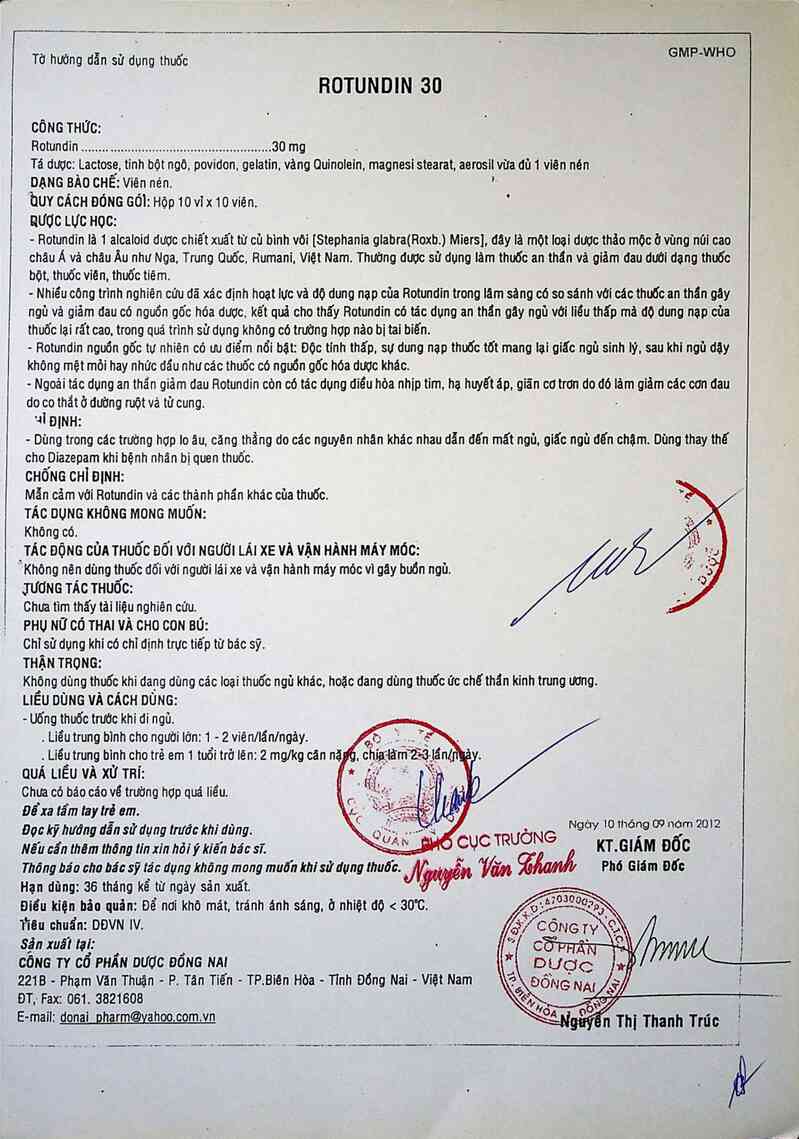 Tờ hướng dẫn sử dụng thuốc
GMP-WHO
ROTUNDIN 30
CÔNG THỨC:
Rotundin ......................................................30 mg
Tá dược: Lactose, tinh bột ngô, povidon, gelatin, vàng Quinolein, magnesi stearat, aerosil vừa đủ 1 viên nén
DẠNG BÀO CHẾ: Viên nén.
QUY CÁCH ĐÓNG GÓI: Hộp 10 vỉ x 10 viên.
DƯỢC LỰC HỌC:
- Rotundin là 1 alcaloid được chiết xuất từ củ bình vôi [Stephania glabra(Roxb.) Miers], đây là một loại dược thảo mộc ở vùng núi cao
châu Á và châu Âu như Nga, Trung Quốc, Rumani, Việt Nam. Thường được sử dụng làm thuốc an thần và giảm đau dưới dạng thuốc
bột, thuốc viên, thuốc tiêm.
- Nhiều công trình nghiên cứu đã xác định hoạt lực và độ dung nạp của Rotundin trong lâm sàng có so sánh với các thuốc an thần gây
ngủ và giảm đau có nguồn gốc hóa dược, kết quả cho thấy Rotundin có tác dụng an thần gây ngủ với liều thấp mà độ dung nạp của
thuốc lại rất cao, trong quá trình sử dụng không có trường hợp nào bị tai biến.
- Rotundin nguồn gốc tự nhiên có ưu điểm nổi bật: Độc tính thấp, sự dung nạp thuốc tốt mang lại giấc ngủ sinh lý, sau khi ngủ dậy
không mệt mỏi hay nhức đầu như các thuốc có nguồn gốc hóa dược khác.
- Ngoài tác dụng an thần giảm đau Rotundin còn có tác dụng điều hòa nhịp tim, hạ huyết áp, giãn cơ trơn do đó làm giảm các cơn đau
do co thắt ở đường ruột và tử cung.
CHỈ ĐỊNH:
- Dùng trong các trường hợp lo âu, căng thẳng do các nguyên nhân khác nhau dẫn đến mất ngủ, giấc ngủ đến chậm. Dùng thay thế
cho Diazepam khi bệnh nhân bị quen thuốc.
CHỐNG CHỈ ĐỊNH:
Mẫn cảm với Rotundin và các thành phần khác của thuốc.
TÁC DỤNG KHÔNG MONG MUỐN:
Không có.
TÁC ĐỘNG CỦA THUỐC ĐỐI VỚI NGƯỜI LÁI XE VÀ VẬN HÀNH MÁY MÓC:
Không nên dùng thuốc đối với người lái xe và vận hành máy móc vì gây buồn ngủ.
TƯƠNG TÁC THUỐC:
Chưa tìm thấy tài liệu nghiên cứu.
PHỤ NỮ CÓ THAI VÀ CHO CON BÚ:
Chỉ sử dụng khi có chỉ định trực tiếp từ bác sỹ.
THẬN TRỌNG:
Không dùng thuốc khi đang dùng các loại thuốc ngủ khác, hoặc đang dùng thuốc ức chế thần kinh trung ương.
LIỀU DÙNG VÀ CÁCH DÙNG:
- Uống thuốc trước khi đi ngủ.
. Liều trung bình cho người lớn: 1 - 2 viên/lần/ngày.
. Liều trung bình cho trẻ em 1 tuổi trở lên: 2 mg/kg cân nặng, chia làm 2-3 lần/ngày.
QUÁ LIỀU VÀ XỬ TRÍ:
Chưa có báo cáo về trường hợp quá liều.
Để xa tầm tay trẻ em.
Đọc kỹ hướng dẫn sử dụng trước khi dùng.
Nếu cần thêm thông tin xin hỏi ý kiến bác sĩ.
Thông báo cho bác sỹ tác dụng không mong muốn khi sử dụng thuốc.
Hạn dùng: 36 tháng kể từ ngày sản xuất.
Điều kiện bảo quản: Để nơi khô mát, tránh ánh sáng, ở nhiệt độ < 30°C.
Tiêu chuẩn: DĐVN IV.
Sản xuất tại:
CÔNG TY CỔ PHẦN DƯỢC ĐỒNG NAI
221B - Phạm Văn Thuận - P. Tân Tiến - TP.Biên Hòa - Tỉnh Đồng Nai - Việt Nam
ĐT, Fax: 061. 3821608
E-mail: donai_pharm@yahoo.com.vn
BỘ Y TẾ
CỤC QUẢN
PHÓ CỤC TRƯỞNG
Nguyễn Văn Thanh
Ngày 10 tháng 09 năm 2012
KT.GIÁM ĐỐC
Phó Giám Đốc
CÔNG TY
CỔ PHẦN
DƯỢC
ĐỒNG NAI
TP. BIÊN HÒA - T. ĐỒNG NAI
Nguyễn Thị Thanh Trúc